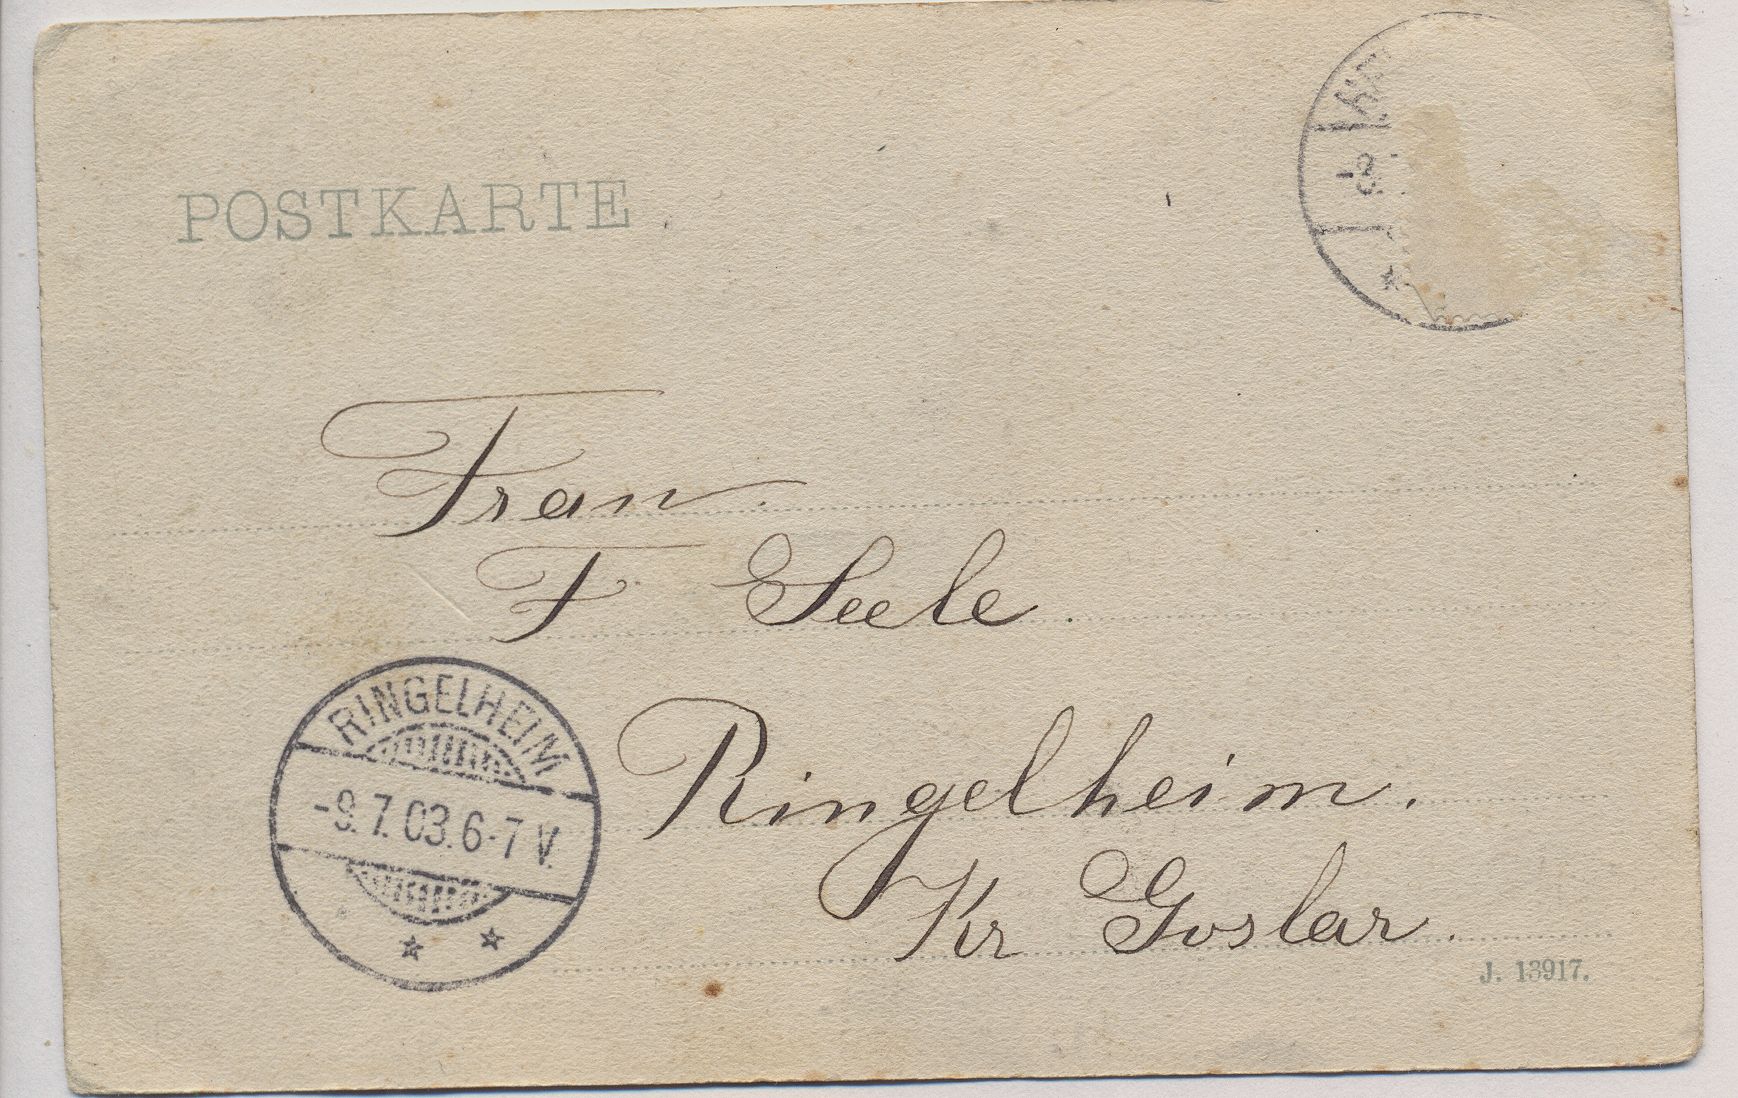 POSTKARTE
-8.
Frau
F Seele
RINGELHEIM
-9.7.03.6-7 V.
Ringelheim.
Kr Goslar.
J. 13917.